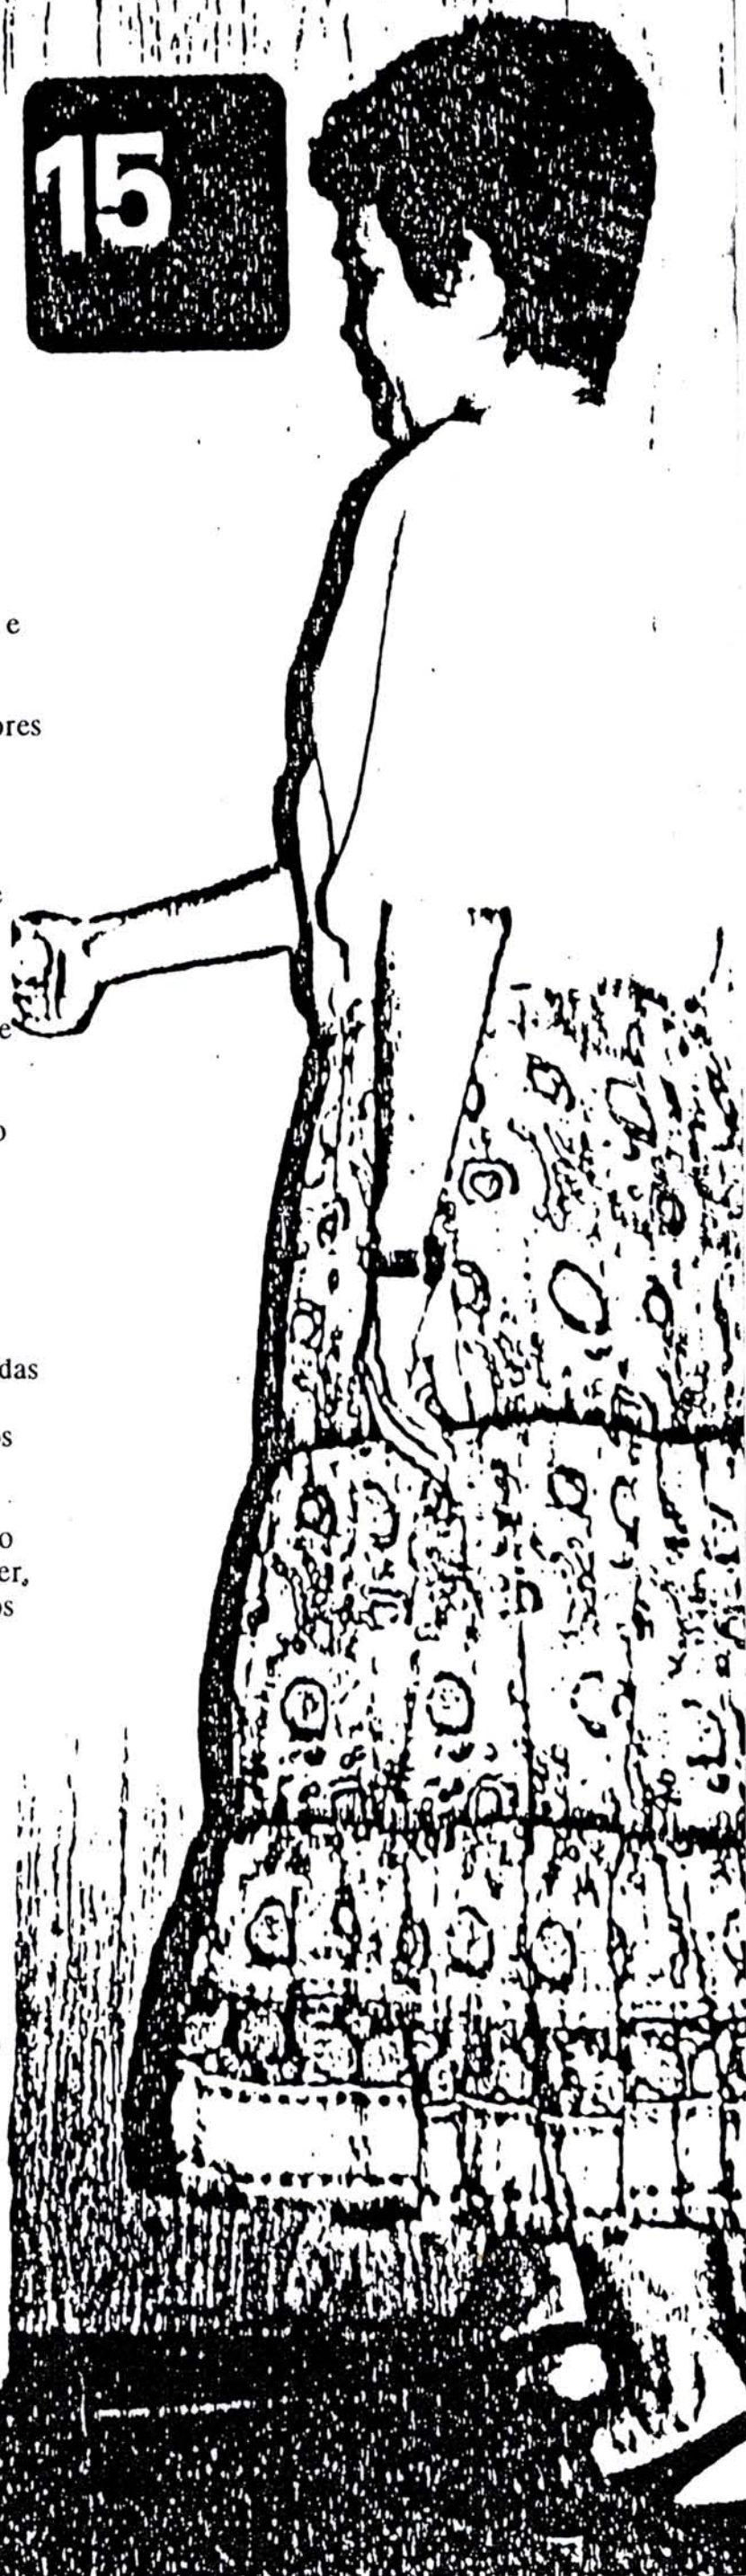 15
e
ores
e
o
das
os
o
er,
os